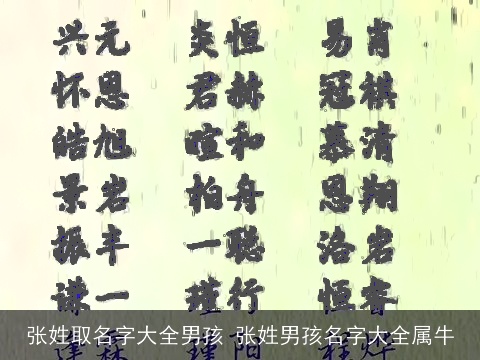 兴元 炎恒 易肖
怀恩 君赫 冠祺
皓旭 喧和 慕清
景岩 柏舟 恩翔
振丰 一聪 洛岩
谦一 瑾行 恒睿
张姓取名字大全男孩 张姓男孩名字大全属牛